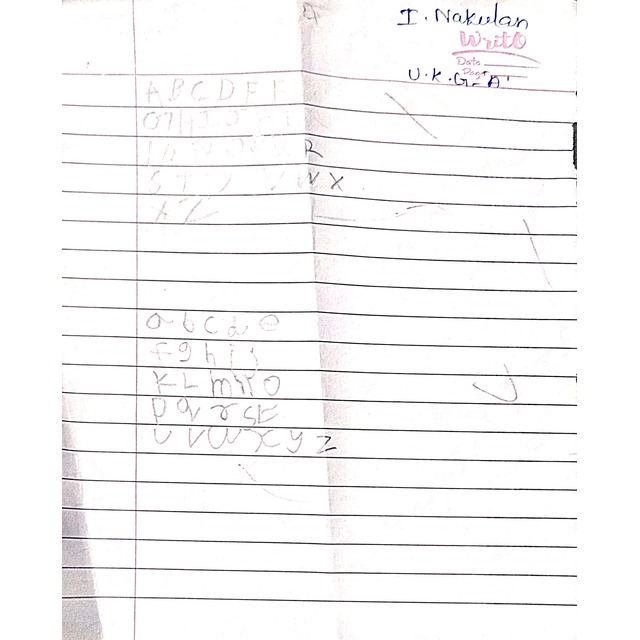 I. Nakulan
Write
Date
Page
U.K.G-'A'
A B C D E F
G H I J
R
S T W X
Y Z
a b c d e
f g h i j
K L m n o
p q r s t
u v w x y z